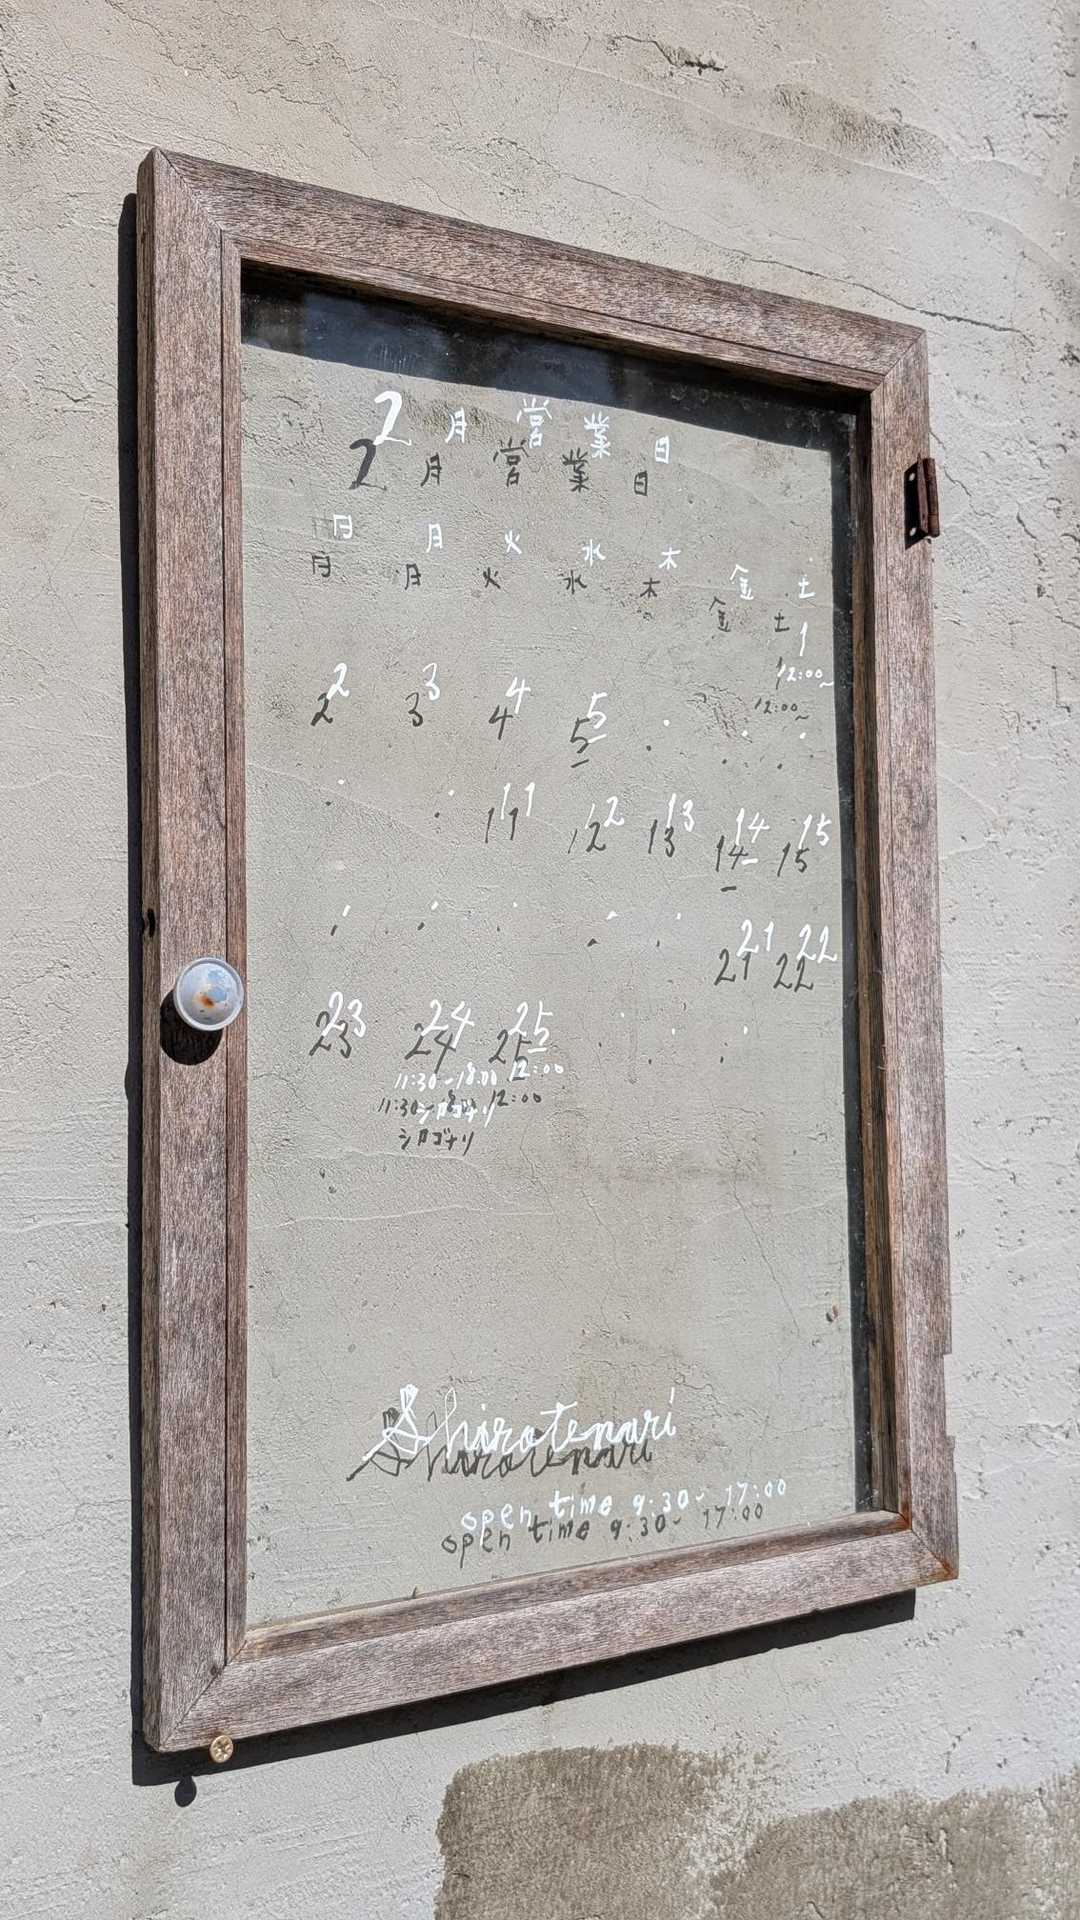 2月営業日
日 月 火 水 木 金 土
1
12:00~
2 3 4 5 · · ·
· · 11 12 13 14 15
· · · · · 21 22
23 24 25 · · ·
11:30-18:00 12:00
シロゴナリ
Shirotenari
open time 9:30~17:00